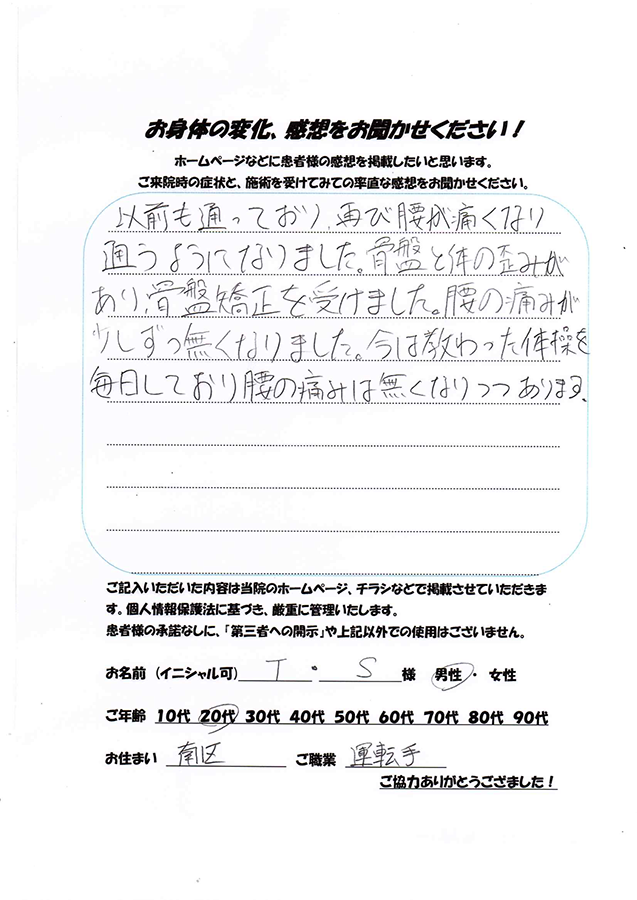 お身体の変化、感想をお聞かせください！
ホームページなどに患者様の感想を掲載したいと思います。
ご来院時の症状と、施術を受けてみての率直な感想をお聞かせください。
以前も通っており、再び腰が痛くなり
通うようになりました。骨盤と体の歪みが
あり、骨盤矯正を受けました。腰の痛みが
少しずつ無くなりました。今は教わった体操を
毎日しており腰の痛みは無くなりつつあります。
ご記入いただいた内容は当院のホームページ、チラシなどで掲載させていただきま
す。個人情報保護法に基づき、厳重に管理いたします。
患者様の承諾なしに、「第三者への開示」や上記以外での使用はございません。
お名前（イニシャル可） T ・ S 様 男性・女性
ご年齢 10代 20代 30代 40代 50代 60代 70代 80代 90代
お住まい 南区 ご職業 運転手
ご協力ありがとうござました！